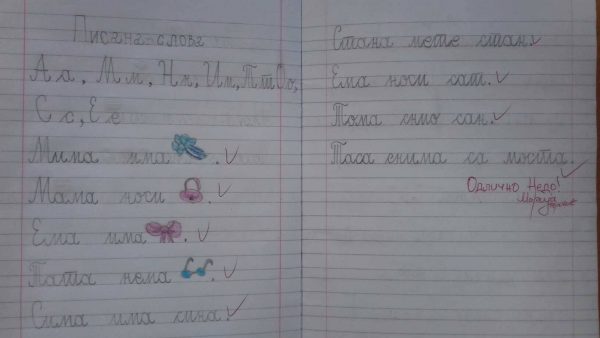 Писана слова
А а, М м, Н н, И и, Т т, О о,
С с, Е е
Мима има .
Мама носи .
Ема има .
Тата нема .
Сима има сина.
Стана мете стан.
Ема носи сат.
Тома снио сан.
Таса снима са моста.
Одлично Недо!
Марија